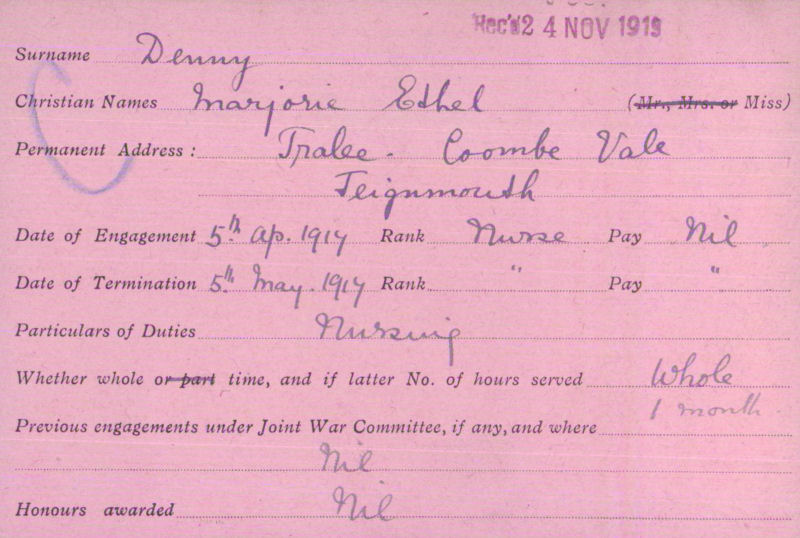 Rec'd 24 NOV 1919
Surname Denny
Christian Names Marjorie Ethel (Mr., Mrs. or Miss)
Permanent Address: Tralee - Coombe Vale
Teignmouth
Date of Engagement 5th Ap. 1917 Rank Nurse Pay Nil
Date of Termination 5th May. 1917 Rank " Pay "
Particulars of Duties Nursing
Whether whole or part time, and if latter No. of hours served Whole
1 month
Previous engagements under Joint War Committee, if any, and where
Nil
Honours awarded Nil